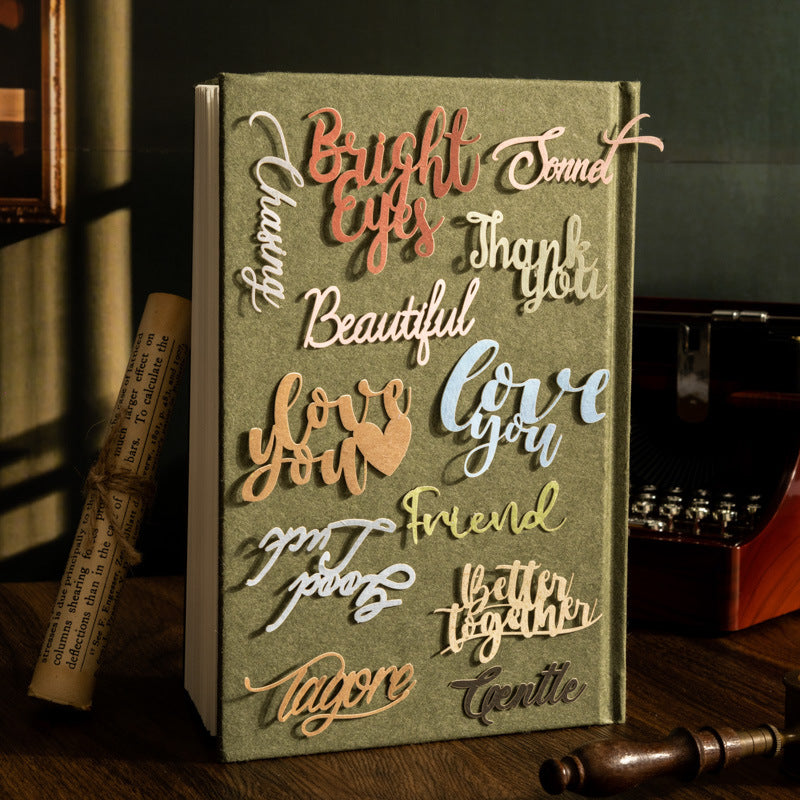 Chasing
Bright
Eyes
Sonnet
Thank
you
Beautiful
love
you
love
you
Friend
Good
Luck
Better
together
Tagore
Gentle
much larger effect on
bars. To calculate the
stresses is due principally to the
columns shearing fo
deflections than in the car